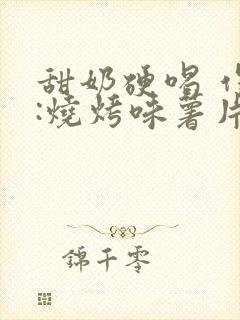 甜奶硬唱
:燒烤味薯片
錦千零